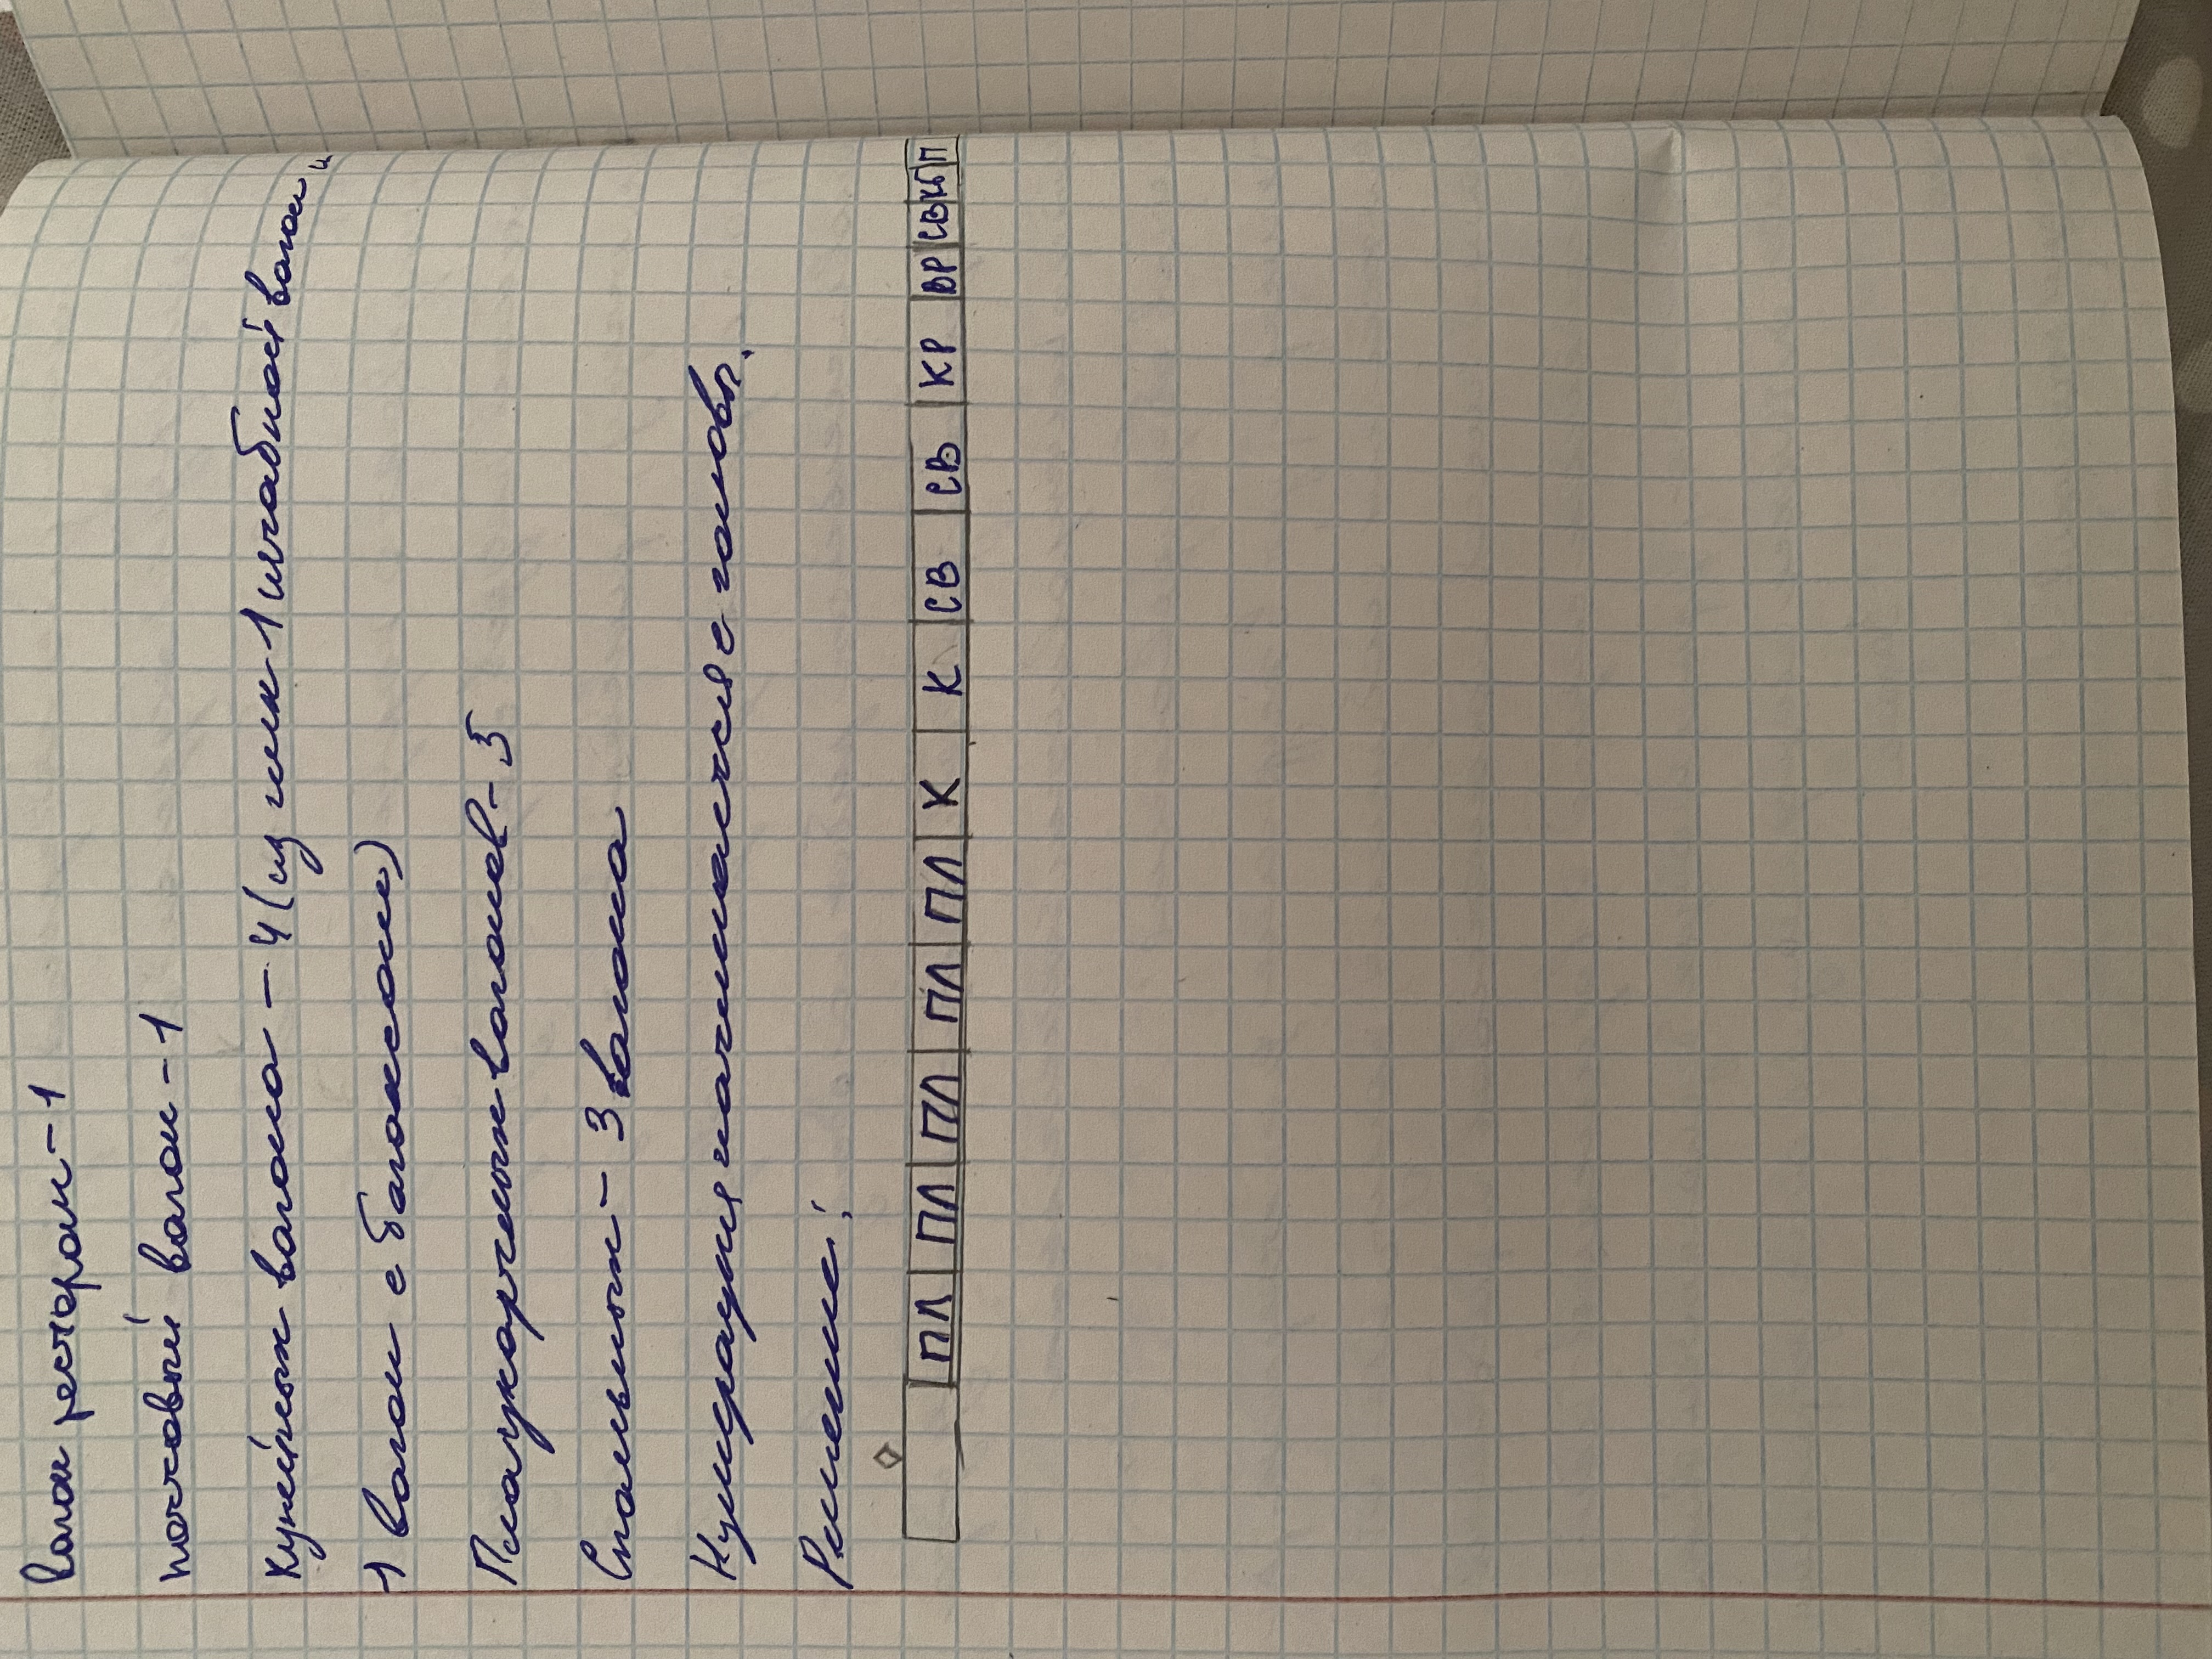 Вагон ресторан-1
почтовый вагон-1
Купейных вагона-4 (из них 1 штабной вагон и
1 вагон с багажом)
Плацкартных вагонов-5
Спальных-3 вагона
Нумерация начинается с головы.
Решение:
ПЛ ПЛ ПЛ ПЛ ПЛ К К СВ СВ КР ВР СВ КБ П